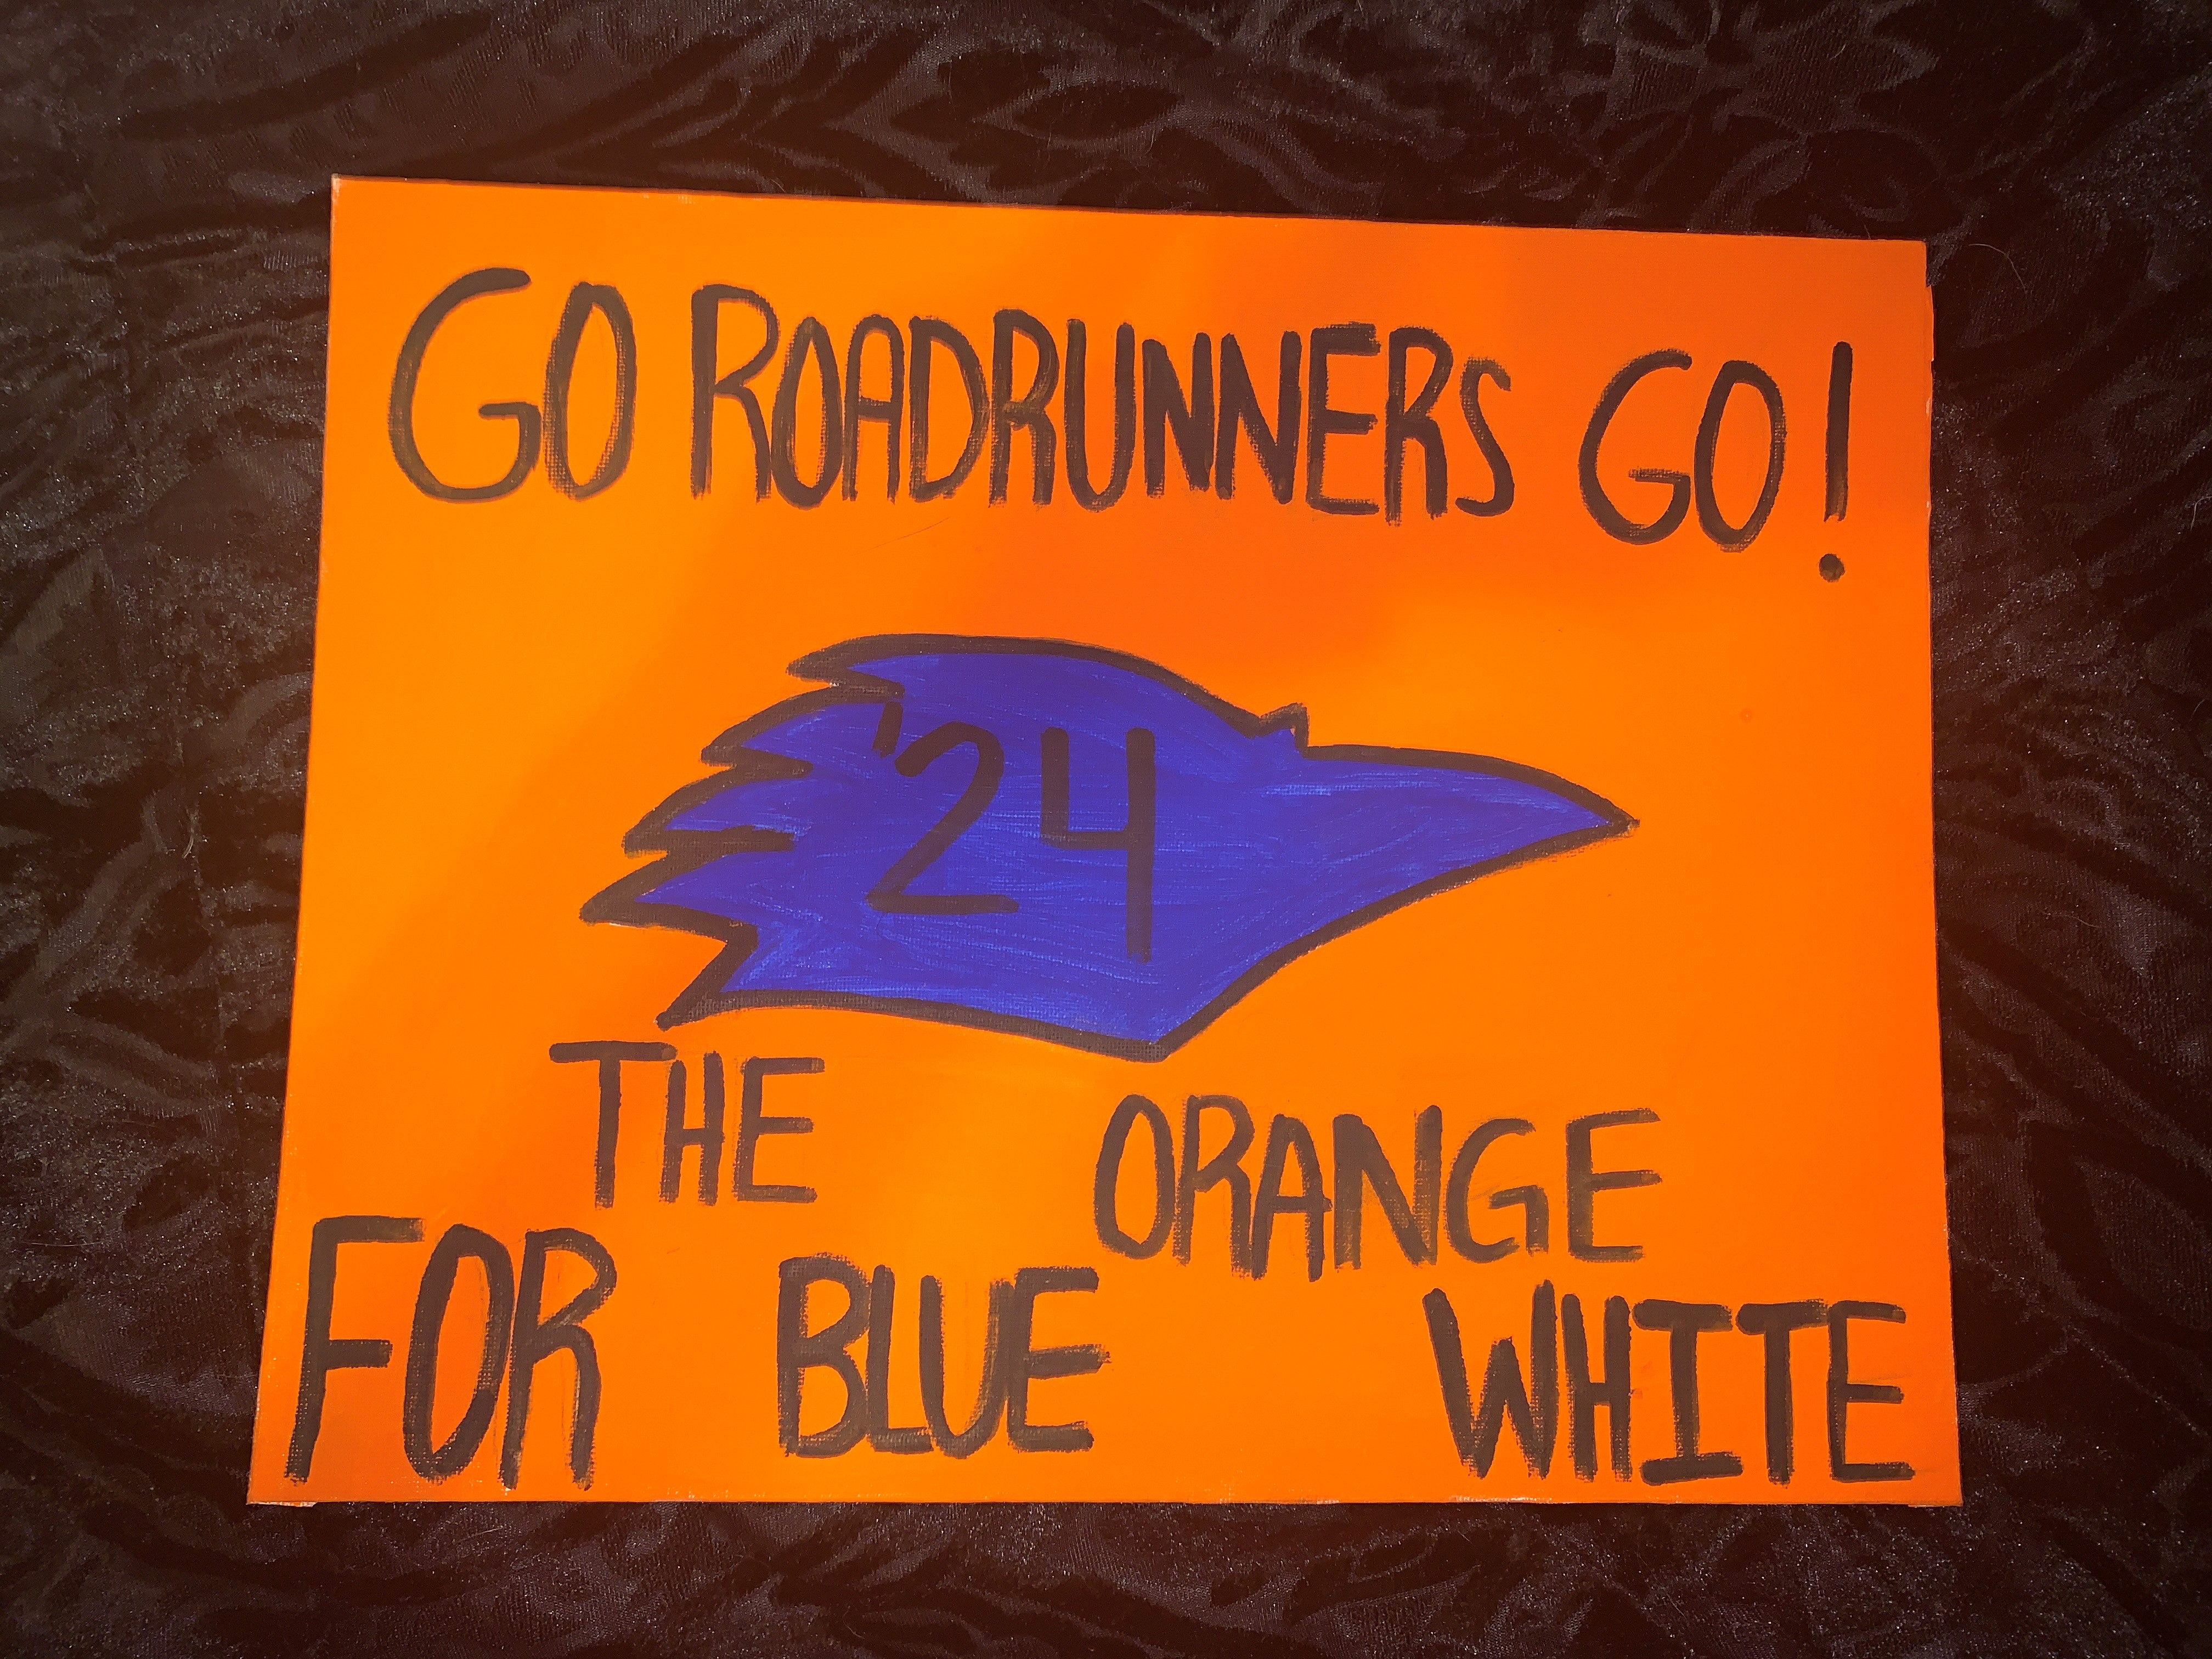 GO ROADRUNNERS GO!
'24
THE ORANGE
FOR BLUE WHITE